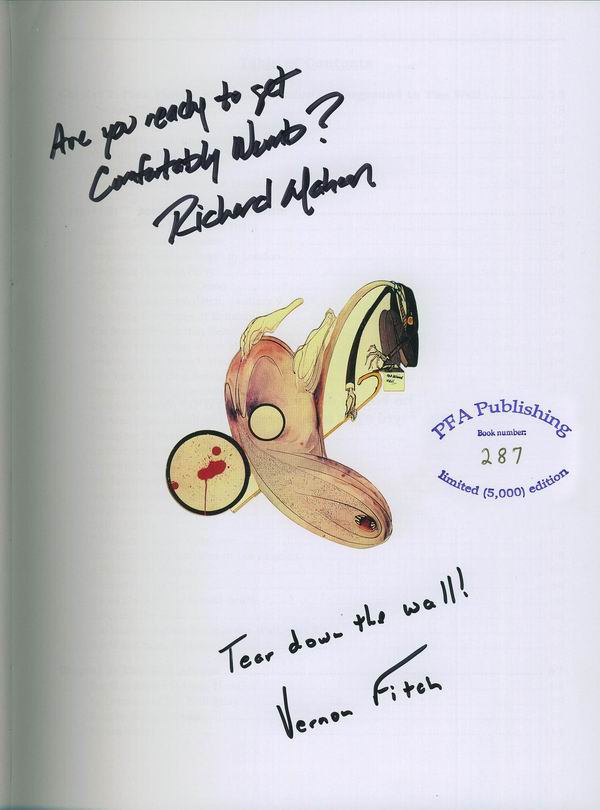 Are you ready to get
Comfortably Numb?
Richard Mahon
PFA Publishing
Book number:
287
limited (5,000) edition
Tear down the wall!
Vernon Fitch